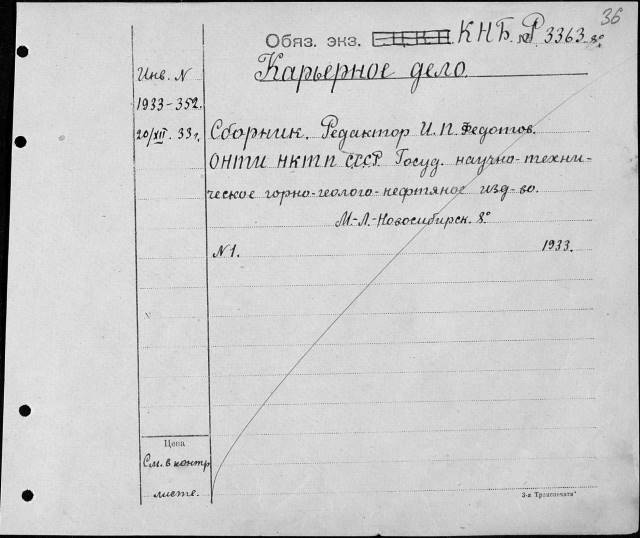 36
Обяз. экз. К.Н.Б. № P 3363 8°
Карьерное дело.
Инв. N
1933-352.
20/XII. 33 г.
Сборник. Редактор И. П. Федотов.
ОНТИ НКТП СССР. Госуд. научно-техни-
ческое горно-геолого-нефтяное изд-во.
М.-Л.-Новосибирск. 8°
N 1. 1933.
Цена
См. в контр.
листе.
3-я Транспечать